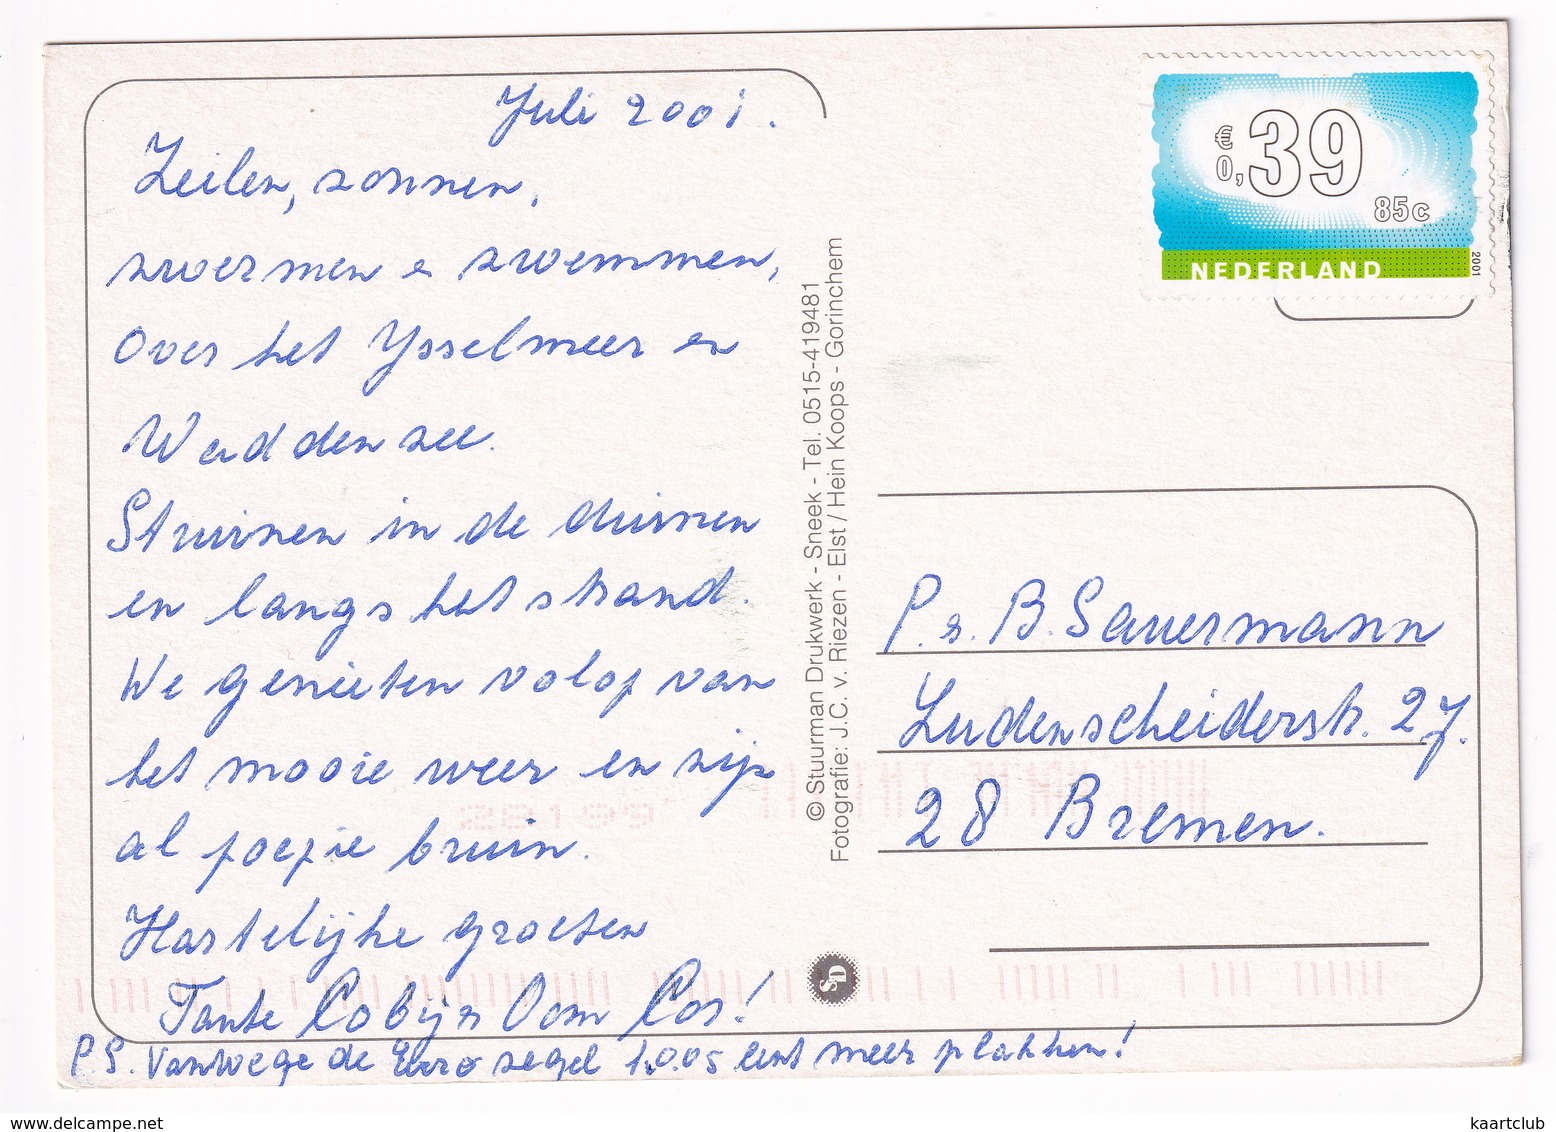 Juli 2001.
Zeilen, zonnen,
zwermen en zwemmen,
Over het Ysselmeer en
Waddenzee.
Struinen in de duinen
en langs het strand.
We genieten volop van
het mooie weer en zijn
al poepie bruin.
Hartelijke groeten
Tante Cobij en Oom Cor!
P.S. Vanwege de Euro zegel cent meer plakken!
© Stuurman Drukwerk - Sneek - Tel. 0515-419481
Fotografie: J.C. v. Riezen - Elst / Hein Koops - Gorinchem
SD
€ 0,39
85c
NEDERLAND
2001
P. B. Sauermann
Ludenscheiderstr. 27.
28 Bremen.
www.delcampe.net
kaartclub